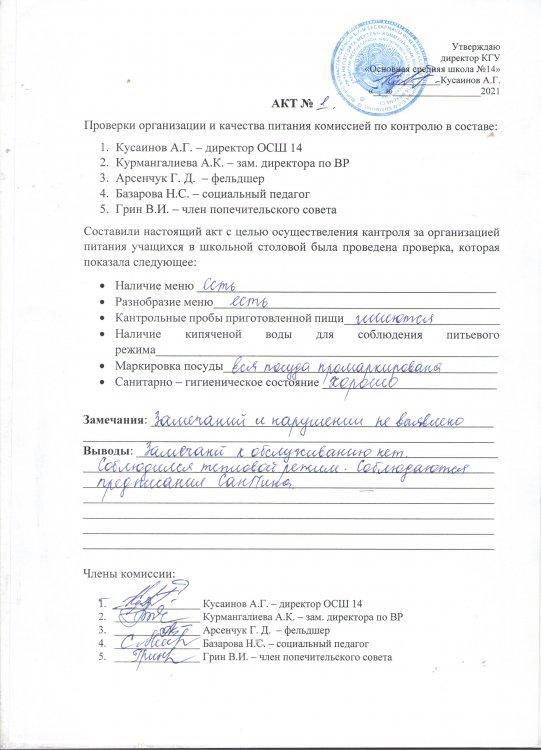 Утверждаю
директор КГУ
«Основная средняя школа №14»
Кусаинов А.Г.
«__»____________2021
АКТ № 1.
Проверки организации и качества питания комиссией по контролю в составе:
1. Кусаинов А.Г. – директор ОСШ 14
2. Курмангалиева А.К. – зам. директора по ВР
3. Арсенчук Г. Д. – фельдшер
4. Базарова Н.С. – социальный педагог
5. Грин В.И. – член попечительского совета
Составили настоящий акт с целью осуществеления кантроля за организацией
питания учащихся в школьной столовой была проведена проверка, которая
показала следующее:
• Наличие меню есть
• Разнобразие меню есть
• Кантрольные пробы приготовленной пищи имеются
• Наличие кипяченой воды для соблюдения питьевого
режима
• Маркировка посуды вся посуда промаркирована
• Санитарно – гигиеническое состояние хорошо
Замечания: Замечаний и нарушении не выявлено
Выводы: Замечаний к обслуживанию нет.
Соблюдился тепловой режим. Соблюдаются
предписания СанПина
Члены комиссии:
1. Кусаинов А.Г. – директор ОСШ 14
2. Курмангалиева А.К. – зам. директора по ВР
3. Арсенчук Г. Д. – фельдшер
4. Базарова Н.С. – социальный педагог
5. Грин Грин В.И. – член попечительского совета